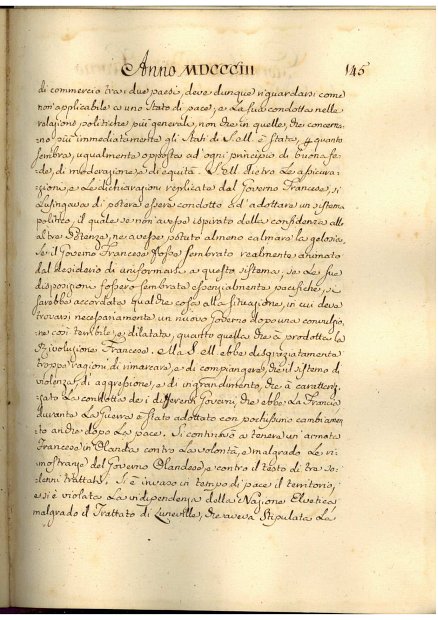 Anno MDCCCIII 145
di commercio tra i due paesi, deve dunque riguardarsi come
non applicabile a uno stato di pace, e la sua condotta nelle
relazioni politiche più generale, non che in quelle, che concerno-
no più immediatamente gli Stati di S. M. è stata, per quanto
sembra, ugualmente opposta ad ogni principio di buona fe-
de, di moderazione, e di equità. S. M. dietro le assicura-
zioni, e le dichiarazioni replicate dal Governo Francese, si
lusingava di potere essere condotto ad adottare un sistema
politico, il quale se non avesse ispirato della confidenza alle
altre Potenze, ne avesse potuto almeno calmare la gelosia.
Se il Governo Francese fosse sembrato realmente animato
dal desiderio di uniformarsi a questa sistema, se le sue
disposizioni fossero sembrate essenzialmente pacifiche, si
sarebbe accordato qualche cosa alla situazione, in cui deve
trovarsi necessariamente un nuovo Governo dopo una convulsio-
ne così terribile, e dilatata, quanto quella che à prodotta la
Rivoluzione Francese. Ma S. M. ebbe disgraziatamente
troppe ragioni di rimarcare, e di compiangere, che il sistema di
violenza, di aggressione, e di ingrandimento, che à caratteriz-
zato la condotta de i differenti Governi, che ebbe la Francia
durante la Guerra è stato adottato con pochissimo cambiamen-
to anche dopo la pace. Si continuò a tenere un armata
Francese in Olanda contro la volontà, e malgrado le ri-
mostranze del Governo Olandese, e contro il testo di tre so-
lenni trattati. Si è invaso in tempo di pace il territorio,
e si è violata la indipendenza della Nazione Elvetica
malgrado il Trattato di Luneville, che aveva stipulata la